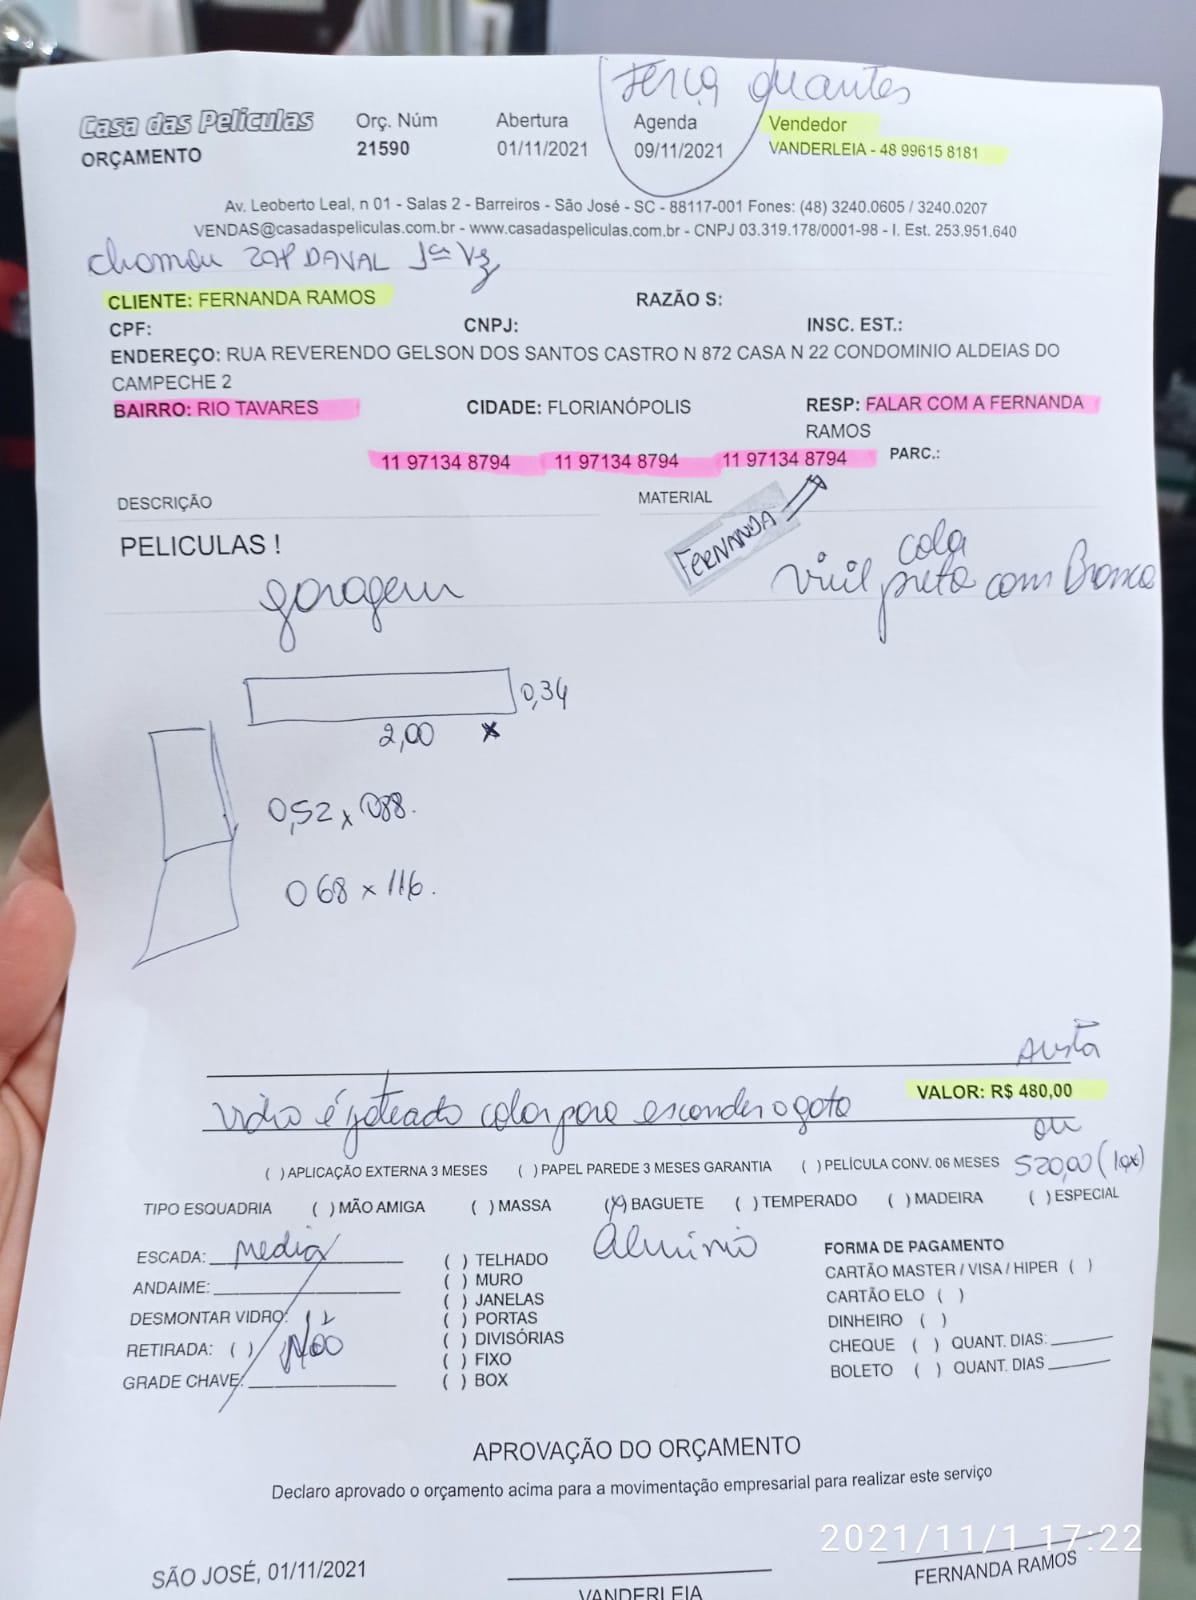 Terça
Casa das Peliculas
ORÇAMENTO
Orç. Núm
21590
Abertura
01/11/2021
Agenda
09/11/2021
Vendedor
VANDERLEIA - 48 99615 8181
Av. Leoberto Leal, n 01 - Salas 2 - Barreiros - São José - SC - 88117-001 Fones: (48) 3240.0605 / 3240.0207
VENDAS@casadaspeliculas.com.br - www.casadaspeliculas.com.br - CNPJ 03.319.178/0001-98 - I. Est. 253.951.640
chamou ZAP DAVAL 1ª Vz
CLIENTE: FERNANDA RAMOS
RAZÃO S:
CPF:
CNPJ:
INSC. EST.:
ENDEREÇO: RUA REVERENDO GELSON DOS SANTOS CASTRO N 872 CASA N 22 CONDOMINIO ALDEIAS DO
CAMPECHE 2
BAIRRO: RIO TAVARES
CIDADE: FLORIANÓPOLIS
RESP: FALAR COM A FERNANDA
RAMOS
11 97134 8794 11 97134 8794 11 97134 8794
PARC.:
DESCRIÇÃO
MATERIAL
FERNANDA
PELICULAS !
cola
preto com Branco
garagem
0,34
2,00 x
0,52 x 088.
068 x 116.
VALOR: R$ 480,00
vidro é jateado colar para esconder o gato
ou
520,00 (10x)
( ) APLICAÇÃO EXTERNA 3 MESES ( ) PAPEL PAREDE 3 MESES GARANTIA ( ) PELÍCULA CONV. 06 MESES
TIPO ESQUADRIA ( ) MÃO AMIGA ( ) MASSA (X) BAGUETE ( ) TEMPERADO ( ) MADEIRA ( ) ESPECIAL
Aluminio
ESCADA: media
ANDAIME:
DESMONTAR VIDRO:
RETIRADA: ( ) Não
GRADE CHAVE:
( ) TELHADO
( ) MURO
( ) JANELAS
( ) PORTAS
( ) DIVISÓRIAS
( ) FIXO
( ) BOX
FORMA DE PAGAMENTO
CARTÃO MASTER / VISA / HIPER ( )
CARTÃO ELO ( )
DINHEIRO ( )
CHEQUE ( ) QUANT. DIAS:
BOLETO ( ) QUANT. DIAS
APROVAÇÃO DO ORÇAMENTO
Declaro aprovado o orçamento acima para a movimentação empresarial para realizar este serviço
2021/11/1 17:22
SÃO JOSÉ, 01/11/2021
VANDERLEIA
FERNANDA RAMOS